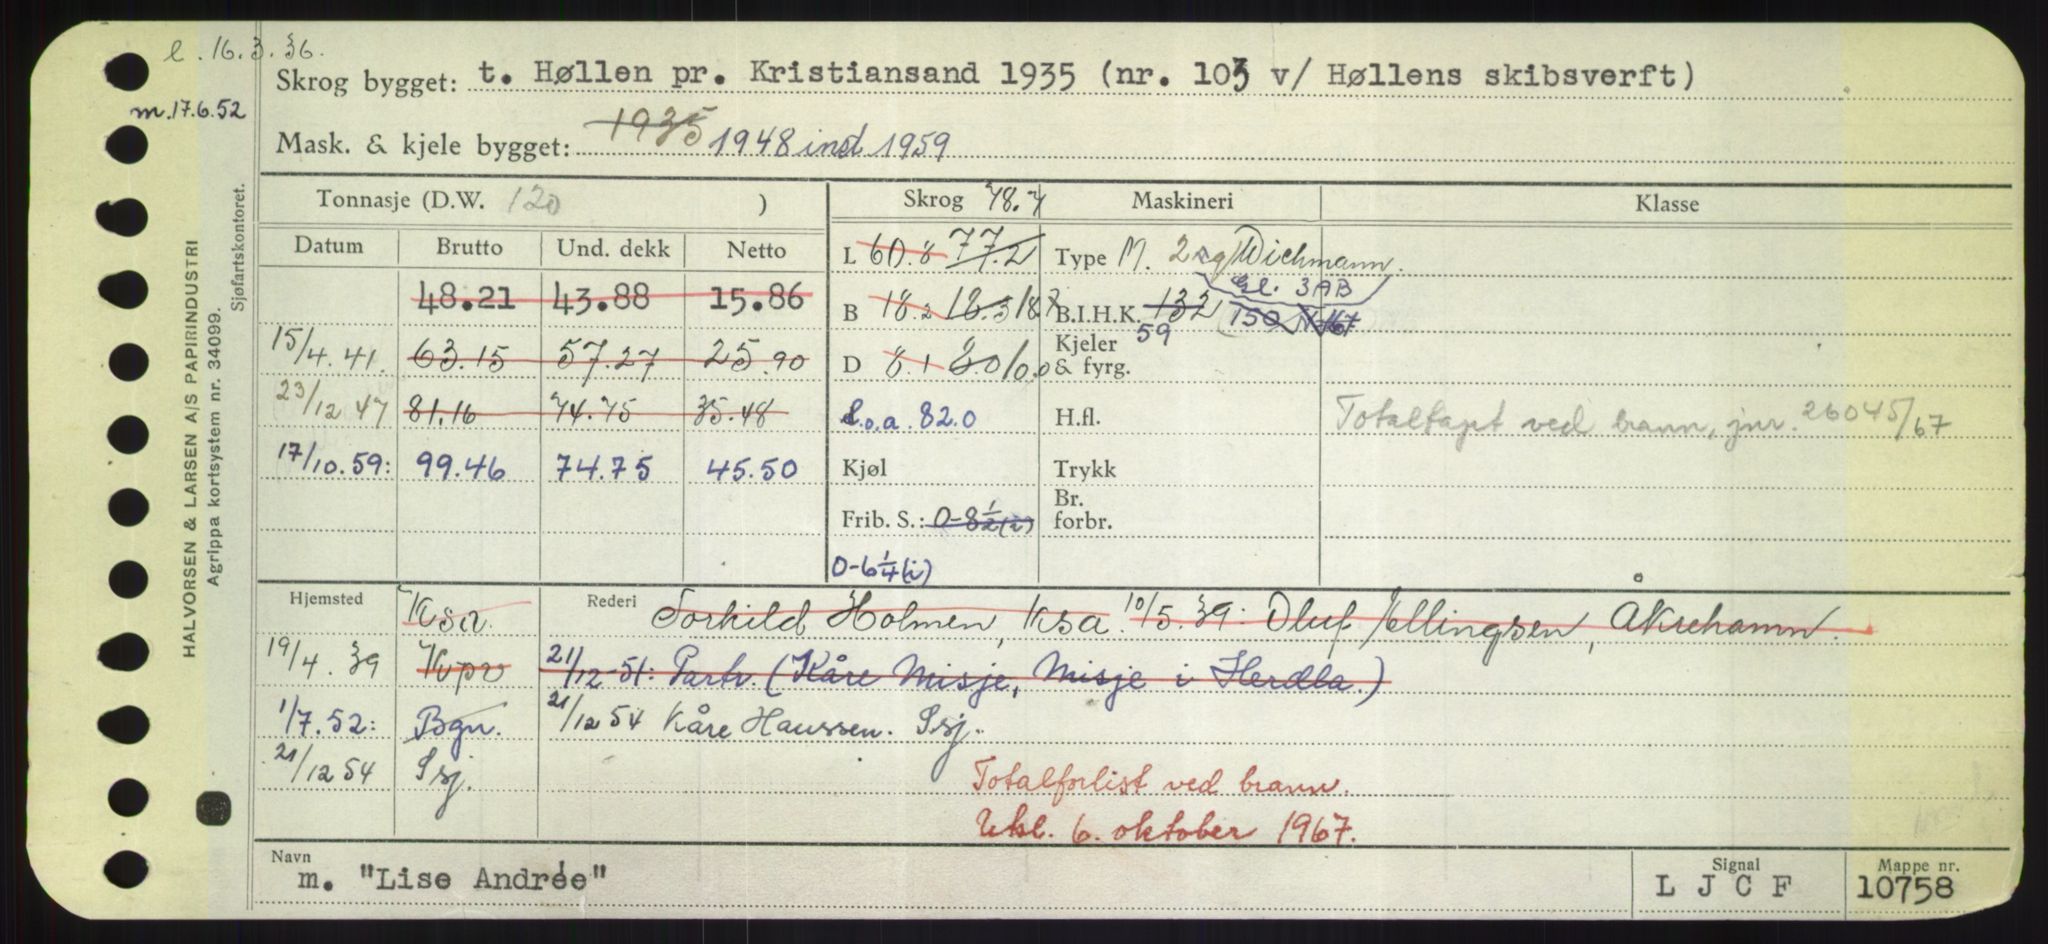 l. 16.3.36.
m. 17.6.52
Skrog bygget: t. Høllen pr. Kristiansand 1935 (nr. 103 v/ Høllens skibsverft)
Mask. & kjele bygget: 1935 1948 ind 1959
Tonnasje (D.W. 120 )
Skrog 78.7
Maskineri
Klasse
Datum Brutto Und. dekk Netto
48.21 43.88 15.86
15/4.41. 63.15 57.27 25.90
23/12 47 81.16 74.75 35.48
17/10.59: 99.46 74.75 45.50
L 60.8 77.2
B 18.2 18.3 18.
D 8.1 8.0
L.o.a 82.0
Kjøl
Frib. S.: 0-8 1/2 (i)
0-6 1/4 (i)
Type M. 2 Wichmann.
Gl. 3AB
B.I.H.K. 132 150
59
Kjeler & fyrg.
H.fl.
Trykk
Br. forbr.
Totaltapt ved brann, jnr. 26045/67
Hjemsted Ksa. Rederi Torkild Holmen, Ksa. 10/5.39: Oluf Ellingsen, Åkrehamn.
19/4.39 Kopv 21/12-51: Partr. (Kåre Misje, Misje i Herdla.)
1/7.52: Bgn. 21/12 54 Kåre Haussen. Ssj.
21/12 54 Ssj.
Totalforlist ved brann.
Utsl. 6. oktober 1967.
Navn m. "Lise Andrée"
Signal L J C F
Mappe nr. 10758
HALVORSEN & LARSEN A/S PAPIRINDUSTRI
Agrippa kortsystem nr. 34099.
Sjøfartskontoret.